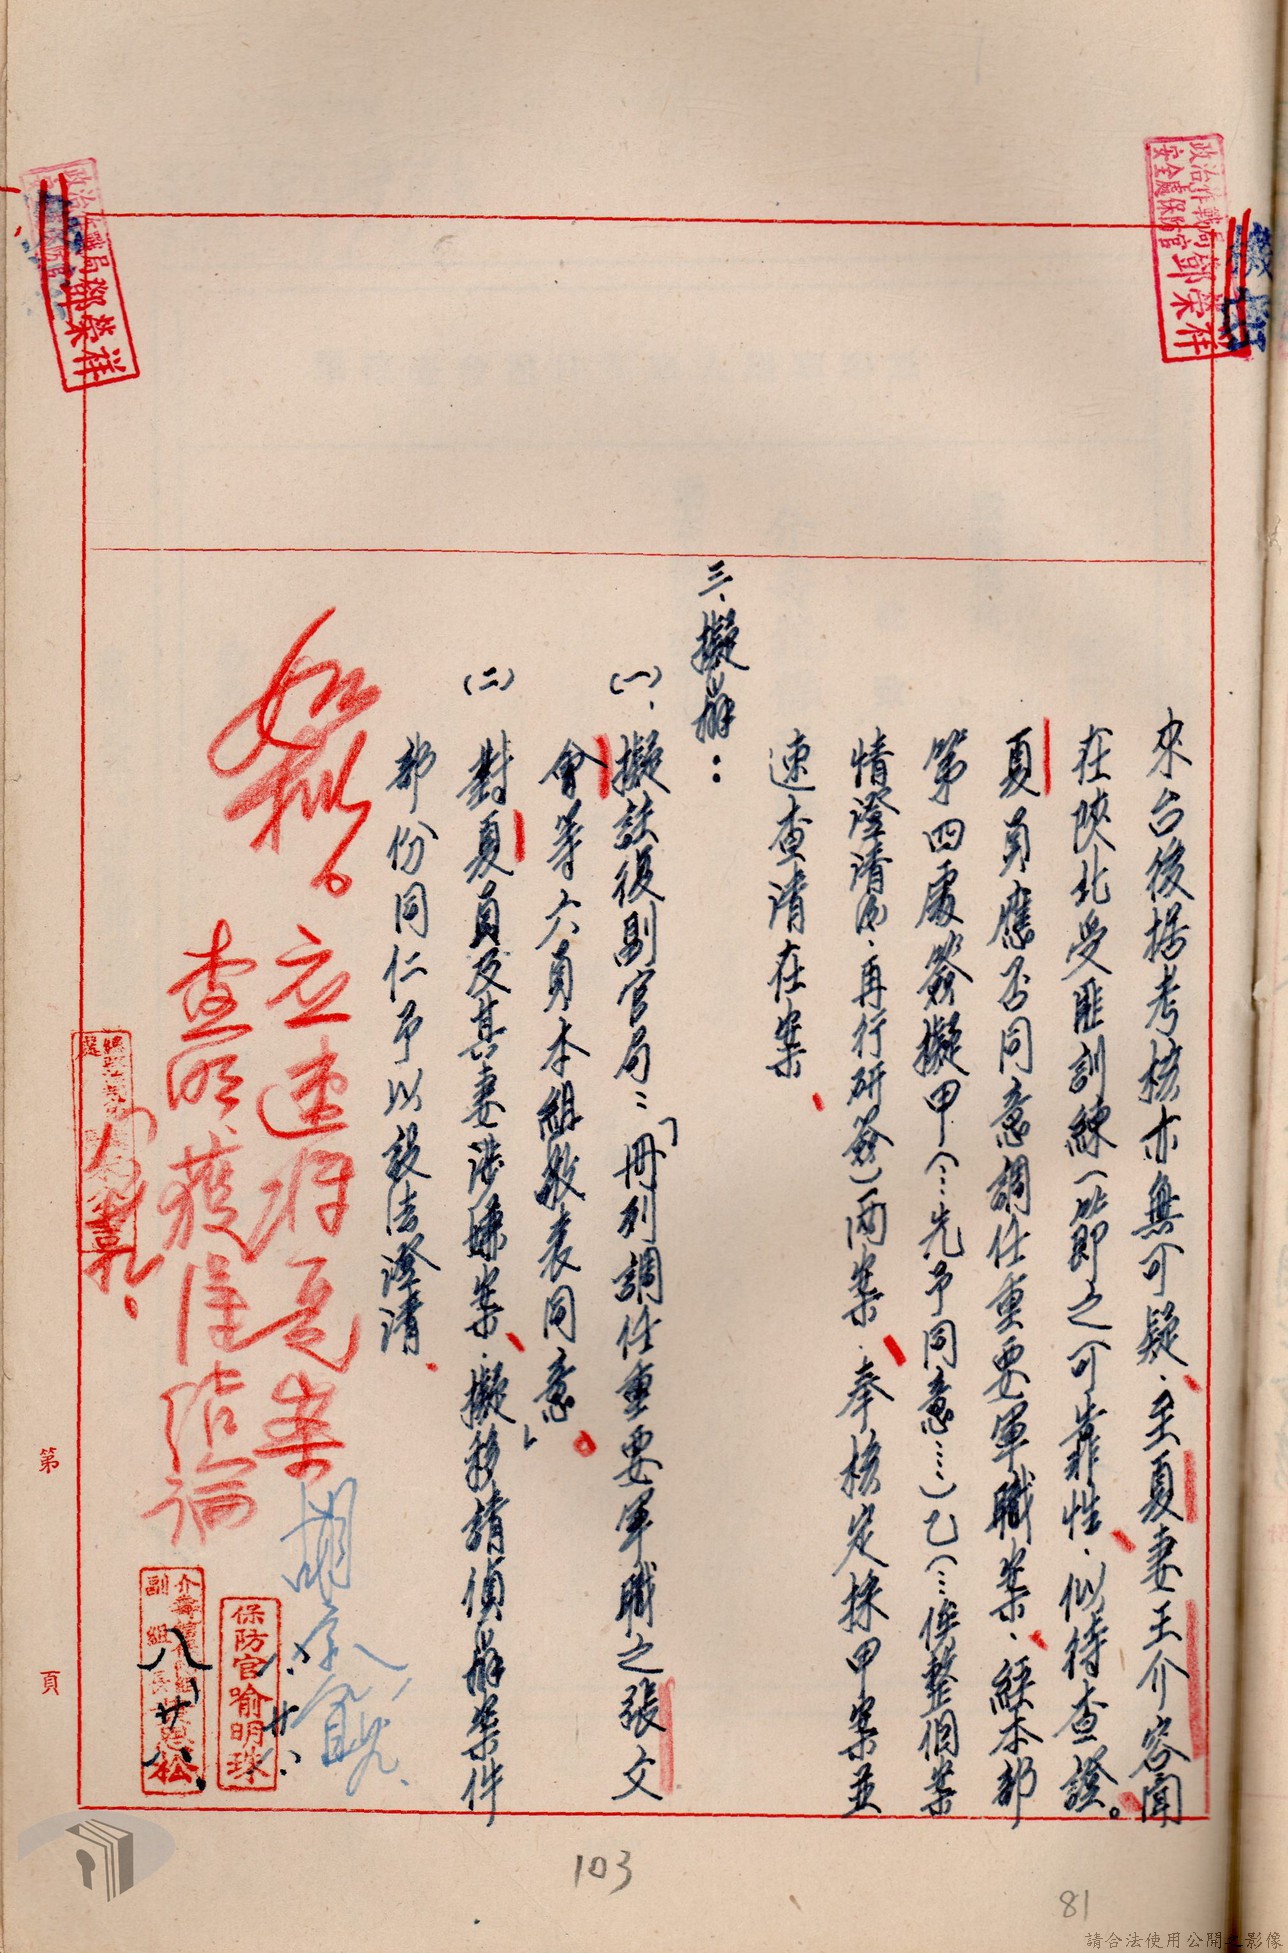 機密
政治作戰局
安全處保防官 鄧榮祥
來台後据考核亦無可疑、至夏妻王介容聞
在陝北受匪訓練一節即之可靠性、似待查證。
夏員應否同意調任重要軍職案、經本部
第四處簽擬甲(…先予同意……)乙(…俟整個案
情澄清後、再行研簽)兩案、奉核定採甲案並
速查清在案
三、擬辦：
(一)、擬註復副官局：「冊列調任重要軍職之張文
會等六員本組敬表同意」
(二)對夏員及其妻涉嫌案、擬移請偵辦案件
部份同仁予以設法澄清
如擬。
應速將夏案
查明獲得結論
胡
保防官喻明珠
八、廿八、
副組長
松
八、廿八、
鄧榮祥
第 頁
103
81
請合法使用公開之影像